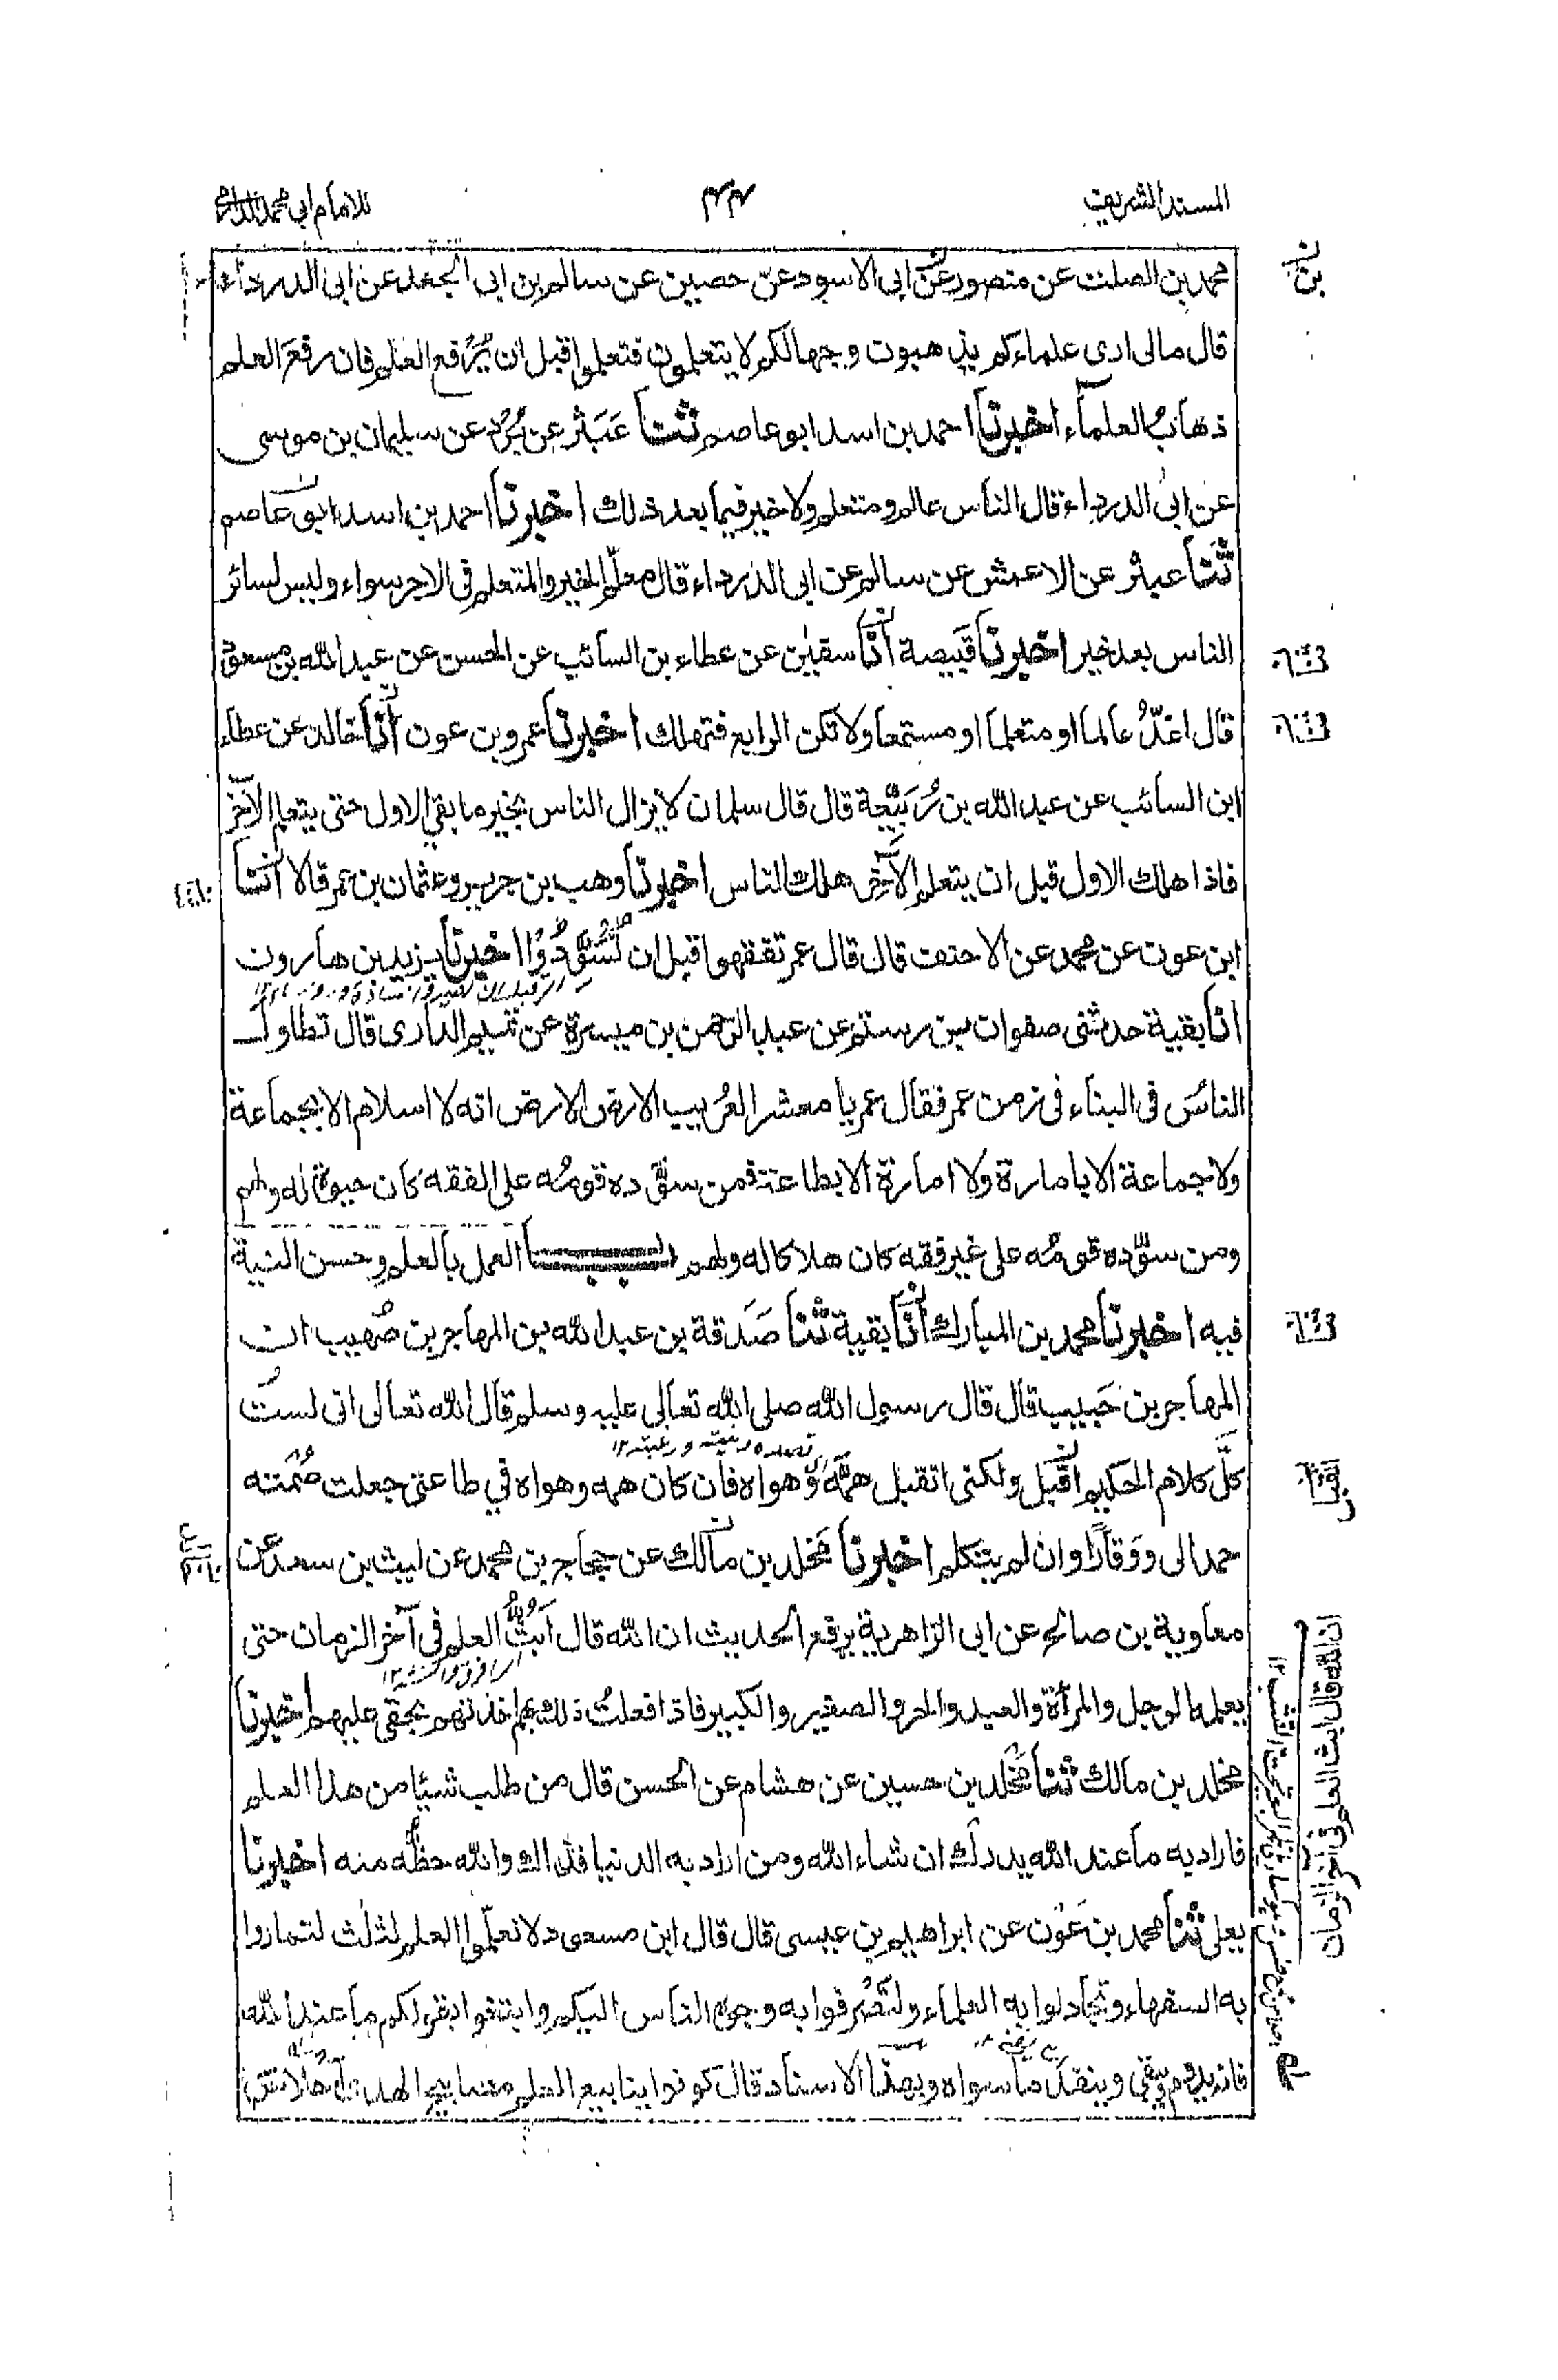 المسند الشريف
٤٤
للامام ابي محمد الدارمي
محمد بن الصلت عن منصور عن ابى الاسود عن حصين عن سالم بن ابى الجعد عن ابى الدرداء
قال مالى ارى علماءكم يذهبون وجهالكم لا يتعلمون فتعلموا قبل ان يُرفع العلم فان رفعَ العلم
ذهابُ العلماء اخبرنا احمد بن اسد ابو عاصم ثنا عَبثر عن بُرد عن سليمان بن موسى
عن ابى الدرداء قال الناس عالم ومتعلم ولا خير فيما بعد ذلك اخبرنا احمد بن اسد ابو عاصم
ثنا عبثر عن الاعمش عن سالم عن ابى الدرداء قال معلّم الخير والمتعلم فى الاجر سواء وليس لسائر
الناس بعد خير اخبرنا قَبيصة أنا سفيٰن عن عطاء بن السائب عن الحسن عن عبد الله بن مسعود
قال اغدُ عالما او متعلما او مستمعا ولا تكن الرابع فتهلك اخبرنا عمرو بن عون أنا خالد عن عطاء
ابن السائب عن عبد الله بن رُبَيّعة قال قال سلمان لا يزال الناس بخير ما بقي الاول حتى يتعلم الآخر
فاذا هلك الاول قبل ان يتعلم الآخر هلك الناس اخبرنا وهب بن جرير وعثمان بن عمر قالا أنا
ابن عون عن محمد عن الاحنف قال قال عمر تفقهوا قبل ان تُسَوَّدُوا اخبرنا يزيد بن هارون
انا بقية حدثنى صفوان بن رستم عن عبد الرحمن بن ميسرة عن تميم الدارى قال تطاول
الناسُ فى البناء فى زمن عمر فقال عمر يا معشر العُريب الارض الارض انه لا اسلام الا بجماعة
ولا جماعة الا بامارة ولا امارة الا بطاعة فمن سوّده قومُه على الفقه كان حيوة له ولهم
ومن سوّده قومُه على غير فقه كان هلاكا له ولهم باب العمل بالعلم وحسن النية
فيه اخبرنا محمد بن المبارك أنا بقية ثنا صَدقة بن عبد الله بن المهاجر بن صُهيب ان
المهاجر بن حَبيب قال قال رسول الله صلى الله تعالى عليه وسلم قال الله تعالى انى لست
كلَّ كلام الحكيم اتقبل ولكنى اتقبل همّه وهواه فان كان همه وهواه في طاعتى جعلت صُمته
حمدا لى ووَقارًا وان لم يتكلم اخبرنا مَخلد بن مالك عن حجاج بن محمد عن ليث بن سعد عن
معاوية بن صالح عن ابى الزاهرية يرفع الحديث ان الله قال أبُثُّ العلم فى آخر الزمان حتى
يعلمه الرجل والمرأة والعبد والحر والصغير والكبير فاذا فعلت ذلك بهم اخذتهم بحقى عليهم اخبرنا
مخلد بن مالك ثنا مَخلد بن حسين عن هشام عن الحسن قال من طلب شيئا من هذا العلم
فاراد به ما عند الله يدرك ان شاء الله ومن اراد به الدنيا فذاك والله حظُّه منه اخبرنا
يعلى ثنا محمد بن عَون عن ابراهيم بن عيسى قال قال ابن مسعود لا تعلّموا العلم لثلٰث لتماروا
به السفهاء وتجادلوا به العلماء ولتصرفوا به وجوه الناس اليكم وابتغوا بقولكم ما عند الله
فانه يدوم ويبقى وينفد ما سواه وبهذا الاسناد قال كونوا ينابيع العلم مصابيح الهدى
ان الله قال ابث العلم فى آخر الزمان